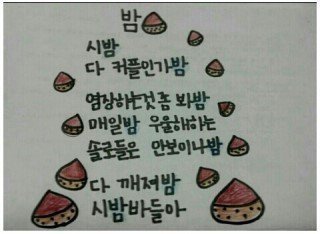 밤
시밤
다 커플인가밤
염장하는것 좀 봐밤
매일밤 우울해하는
솔로들은 안보이나밤
다 깨져밤
시밤바들아